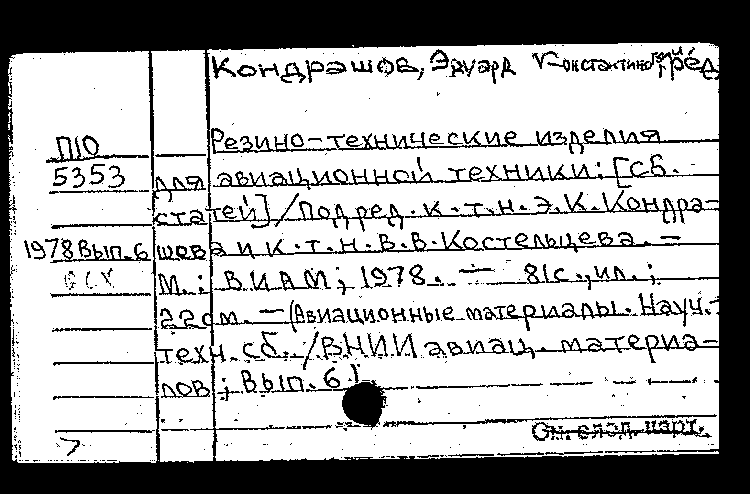 Кондрашов, Эдуард Константинович, ред.
П10
5353
1978 Вып. 6
Резино-технические изделия
для авиационной техники: [Сб.
статей] / Под ред. к.т.н. Э.К. Кондра-
шова и к.т.н. В.В. Костельцева. —
М.: ВИАМ; 1978. — 81с., ил.;
22см. — (Авиационные материалы. Науч.-
техн. сб. / ВНИИ авиац. материа-
лов; Вып. 6)
См. след. карт.